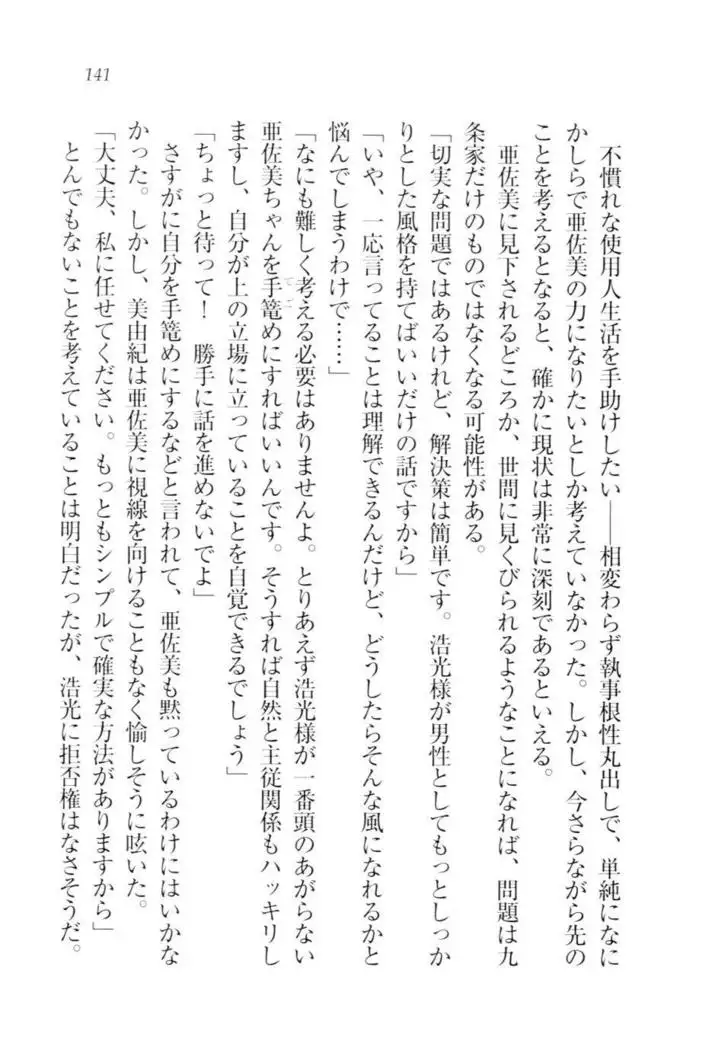 141
不慣れな使用人生活を手助けしたい――相変わらず執事根性丸出しで、単純になに
かしらで亜佐美の力になりたいとしか考えていなかった。しかし、今さらながら先の
ことを考えるとなると、確かに現状は非常に深刻であるといえる。
亜佐美に見下されるどころか、世間に見くびられるようなことになれば、問題は九
条家だけのものではなくなる可能性がある。
「切実な問題ではあるけれど、解決策は簡単です。浩光様が男性としてもっとしっか
りとした風格を持てばいいだけの話ですから」
「いや、一応言ってることは理解できるんだけど、どうしたらそんな風になれるかと
悩んでしまうわけで……」
「なにも難しく考える必要はありませんよ。とりあえず浩光様が一番頭のあがらない
亜佐美ちゃんを手篭めにすればいいんです。そうすれば自然と主従関係もハッキリし
ますし、自分が上の立場に立っていることを自覚できるでしょう」
「ちょっと待って！　勝手に話を進めないでよ」
さすがに自分を手篭めにするなどと言われて、亜佐美も黙っているわけにはいかな
かった。しかし、美由紀は亜佐美に視線を向けることもなく愉しそうに呟いた。
「大丈夫、私に任せてください。もっともシンプルで確実な方法がありますから」
とんでもないことを考えていることは明白だったが、浩光に拒否権はなさそうだ。